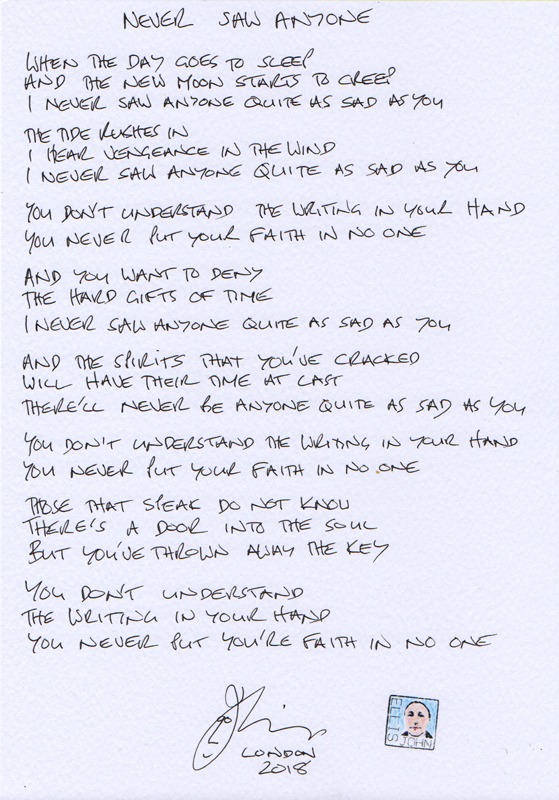 NEVER SAW ANYONE
WHEN THE DAY GOES TO SLEEP
AND THE NEW MOON STARTS TO CREEP
I NEVER SAW ANYONE QUITE AS SAD AS YOU
THE TIDE RUSHES IN
I HEAR VENGEANCE IN THE WIND
I NEVER SAW ANYONE QUITE AS SAD AS YOU
YOU DON'T UNDERSTAND THE WRITING IN YOUR HAND
YOU NEVER PUT YOUR FAITH IN NO ONE
AND YOU WANT TO DENY
THE HARD GIFTS OF TIME
I NEVER SAW ANYONE QUITE AS SAD AS YOU
AND THE SPIRITS THAT YOU'VE CRACKED
WILL HAVE THEIR TIME AT LAST
THERE'LL NEVER BE ANYONE QUITE AS SAD AS YOU
YOU DON'T UNDERSTAND THE WRITING IN YOUR HAND
YOU NEVER PUT YOUR FAITH IN NO ONE
THOSE THAT SPEAK DO NOT KNOW
THERE'S A DOOR INTO THE SOUL
BUT YOU'VE THROWN AWAY THE KEY
YOU DON'T UNDERSTAND
THE WRITING IN YOUR HAND
YOU NEVER PUT YOU'RE FAITH IN NO ONE
LONDON
2018
ELLIS
JOHN